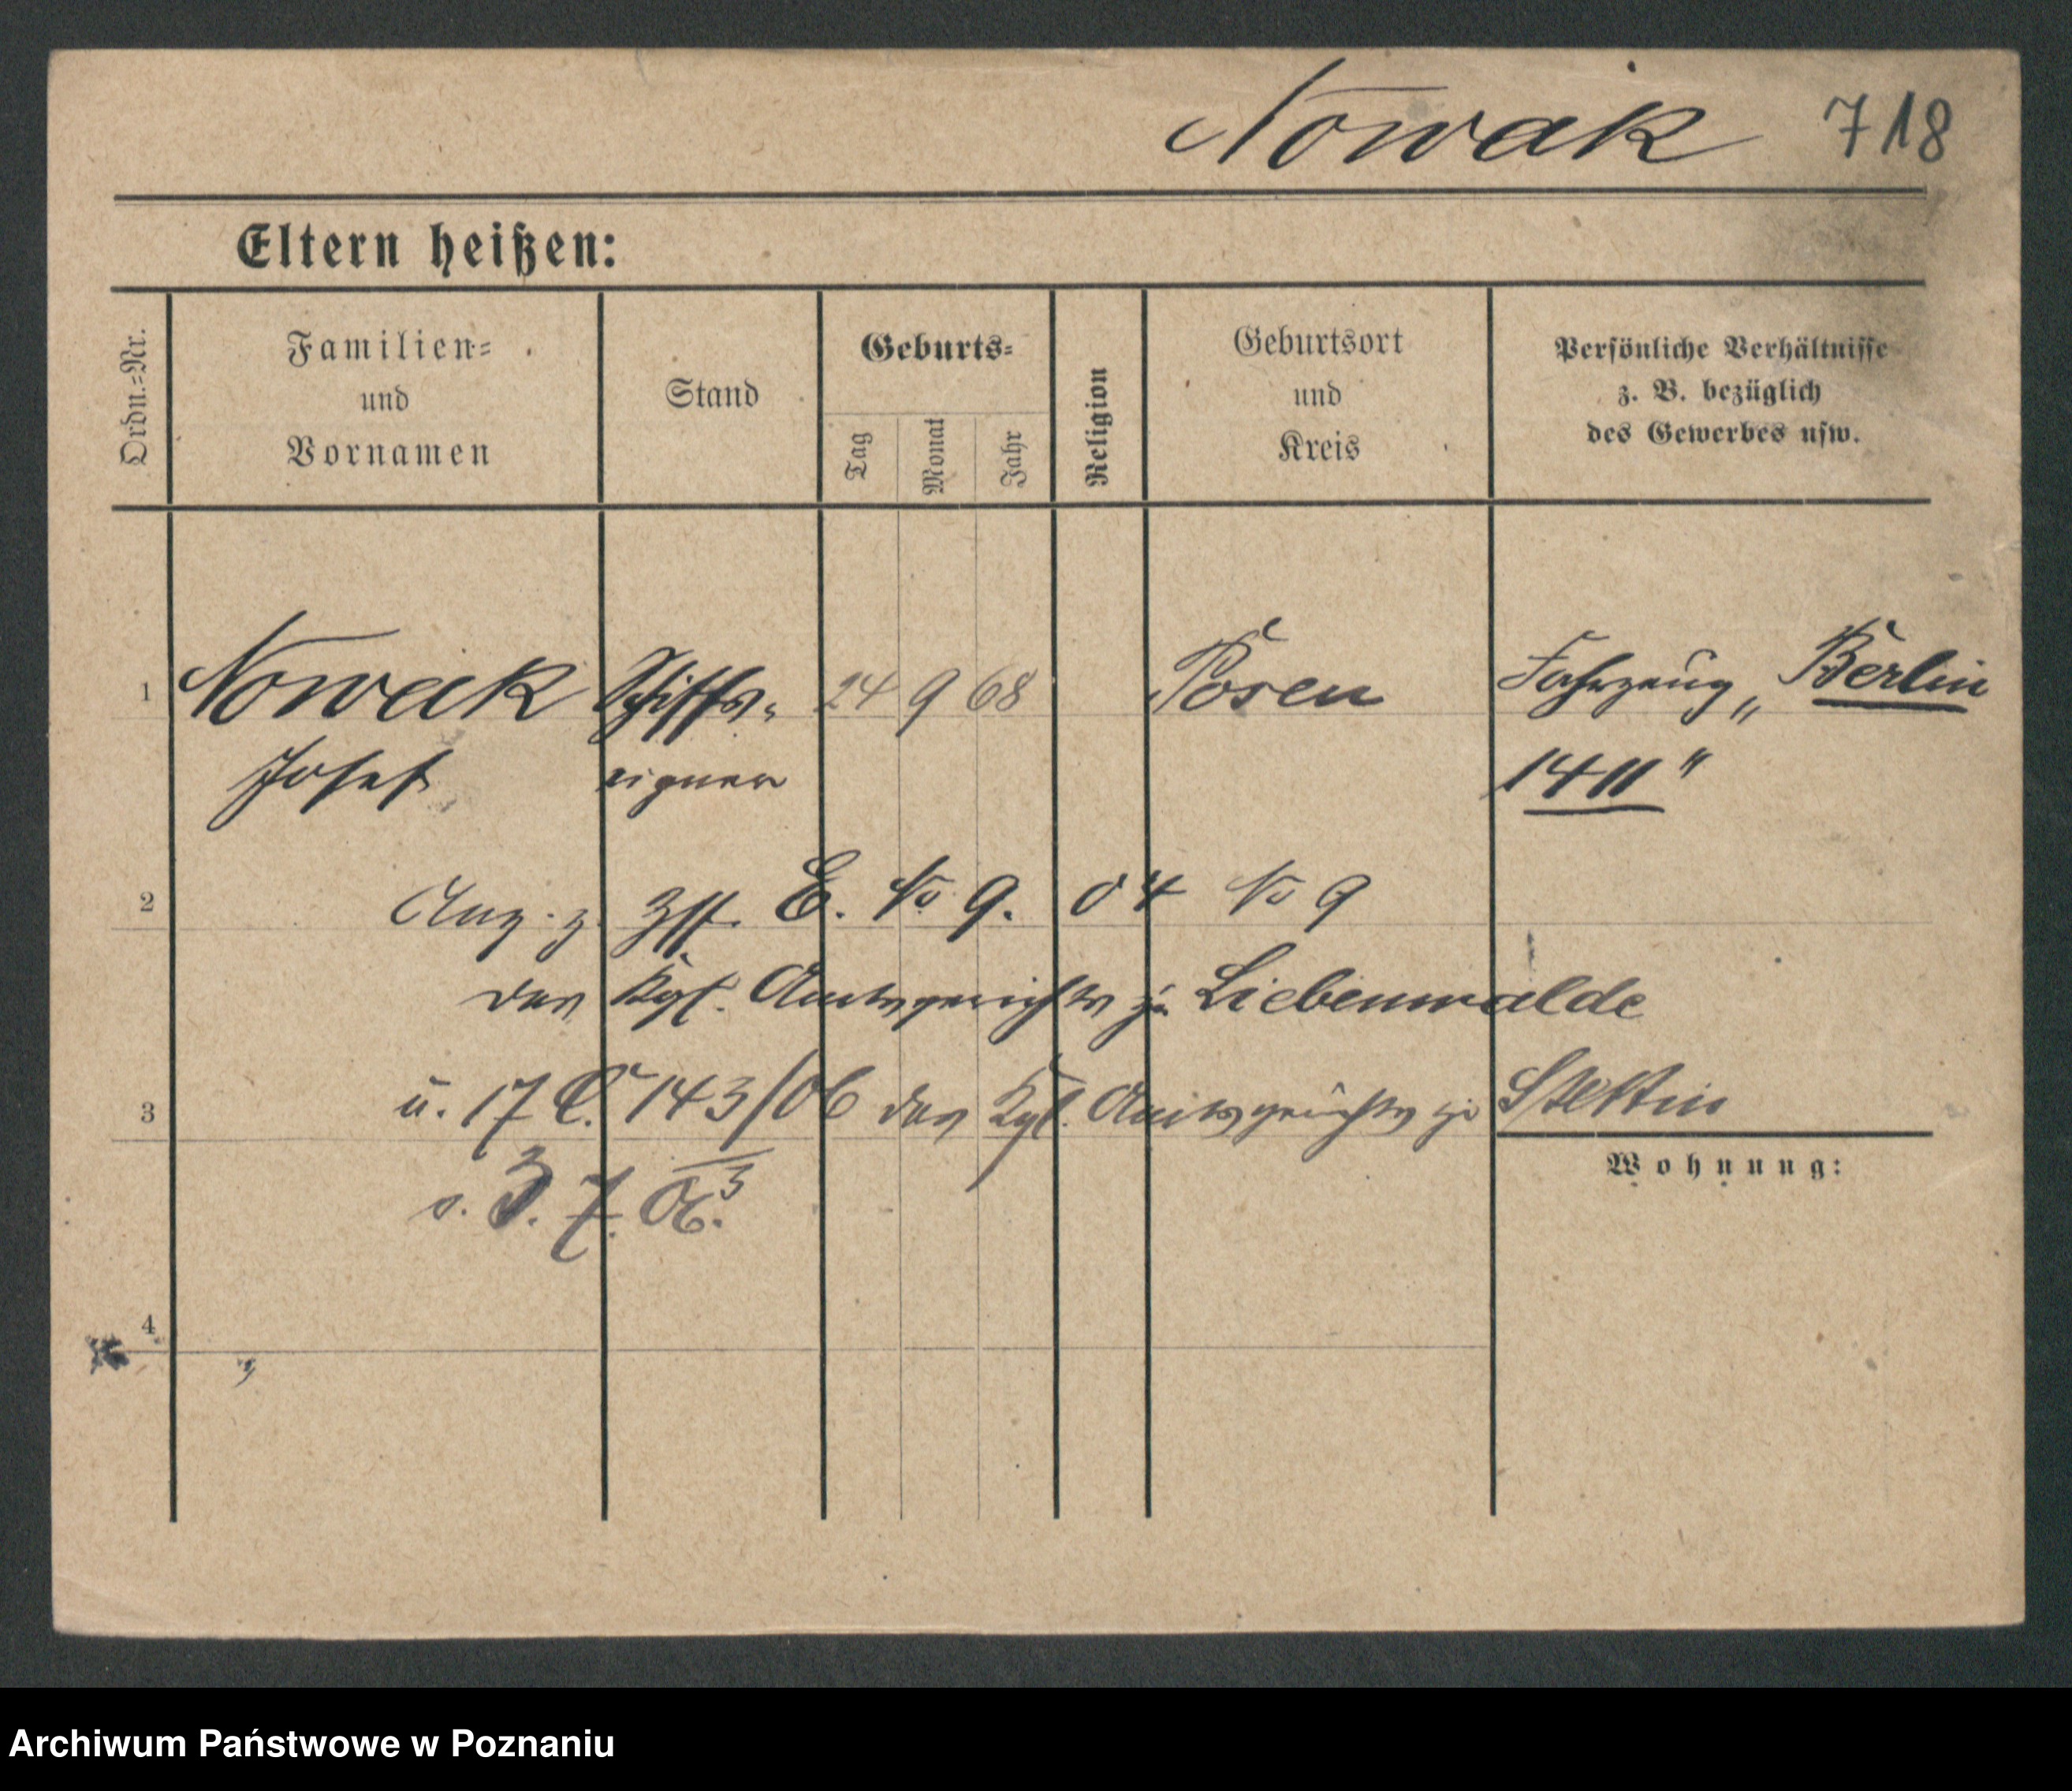 Nowak 718
Eltern heißen:
Ordn.=Nr.
Familien=
und
Vornamen
Stand
Geburts=
Tag
Monat
Jahr
Religion
Geburtsort
und
Kreis
Persönliche Verhältnisse
z. B. bezüglich
des Gewerbes usw.
1 Nowak Schiffs- 24 9 68 Posen Fahrzeug „Berlin
Josef eigner 1411"
2 Anz. z. E. No 9. 04 No 9
des Kgl. Amtsgerichts zu Liebenwalde
3 u. 17 C. 143/06 des Kgl. Amtsgerichts zu Stettin
3. 7. 06.
Wohnung:
4
Archiwum Państwowe w Poznaniu